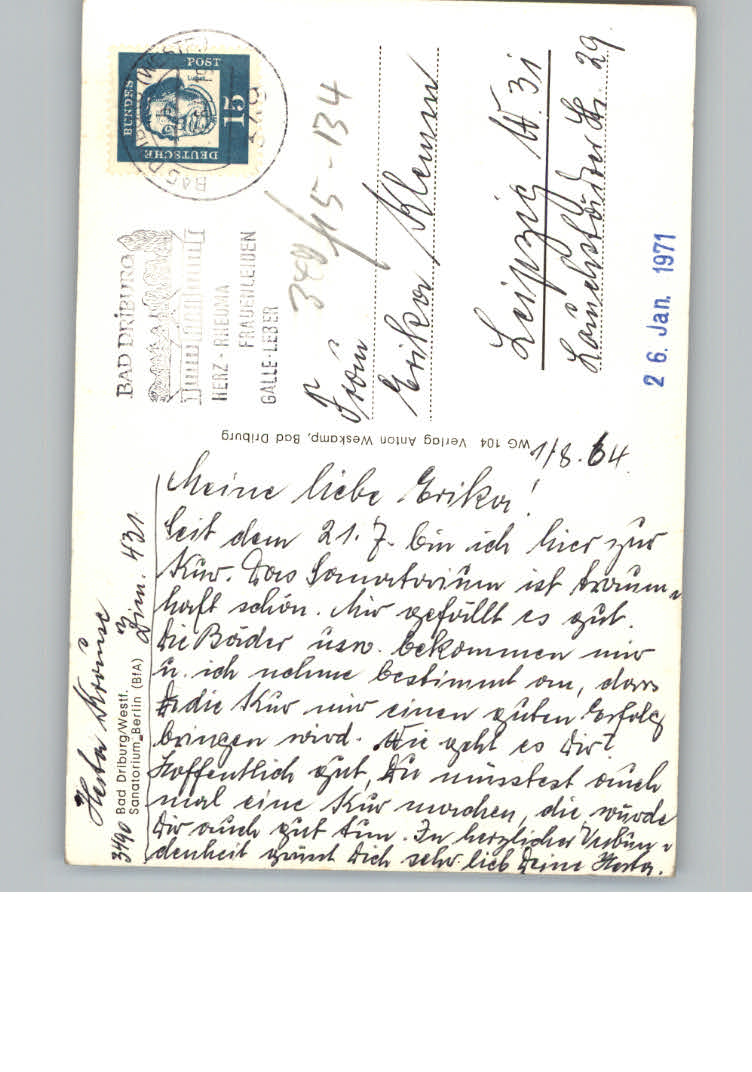 DEUTSCHE
BUNDES
POST
15
BAD DRIBURG
HERZ - RHEUMA
FRAUENLEIDEN
GALLE-LEBER
Frau
Erika Klemm
Leipzig W 31
Lauchstädter Str. 29.
26. Jan. 1971
WG 104 Verlag Anton Weskamp, Bad Driburg
1/8. 64.
Meine liebe Erika!
Seit dem 21. 7. bin ich hier zur
Kur. Das Sanatorium ist traum-
haft schön. Mir gefällt es gut.
Die Bäder usw. bekommen mir
u. ich nehme bestimmt an, dass
die Kur mir einen guten Erfolg
bringen wird. Wie geht es Dir?
Hoffentlich gut, Du müsstest auch
mal eine Kur machen, die würde
Dir auch gut tun. In herzlicher Verbun-
denheit grüsst Dich sehr lieb Deine Herta.
Herta Krause
3490 Bad Driburg/Westf. Zim. 431.
Sanatorium Berlin (BfA)